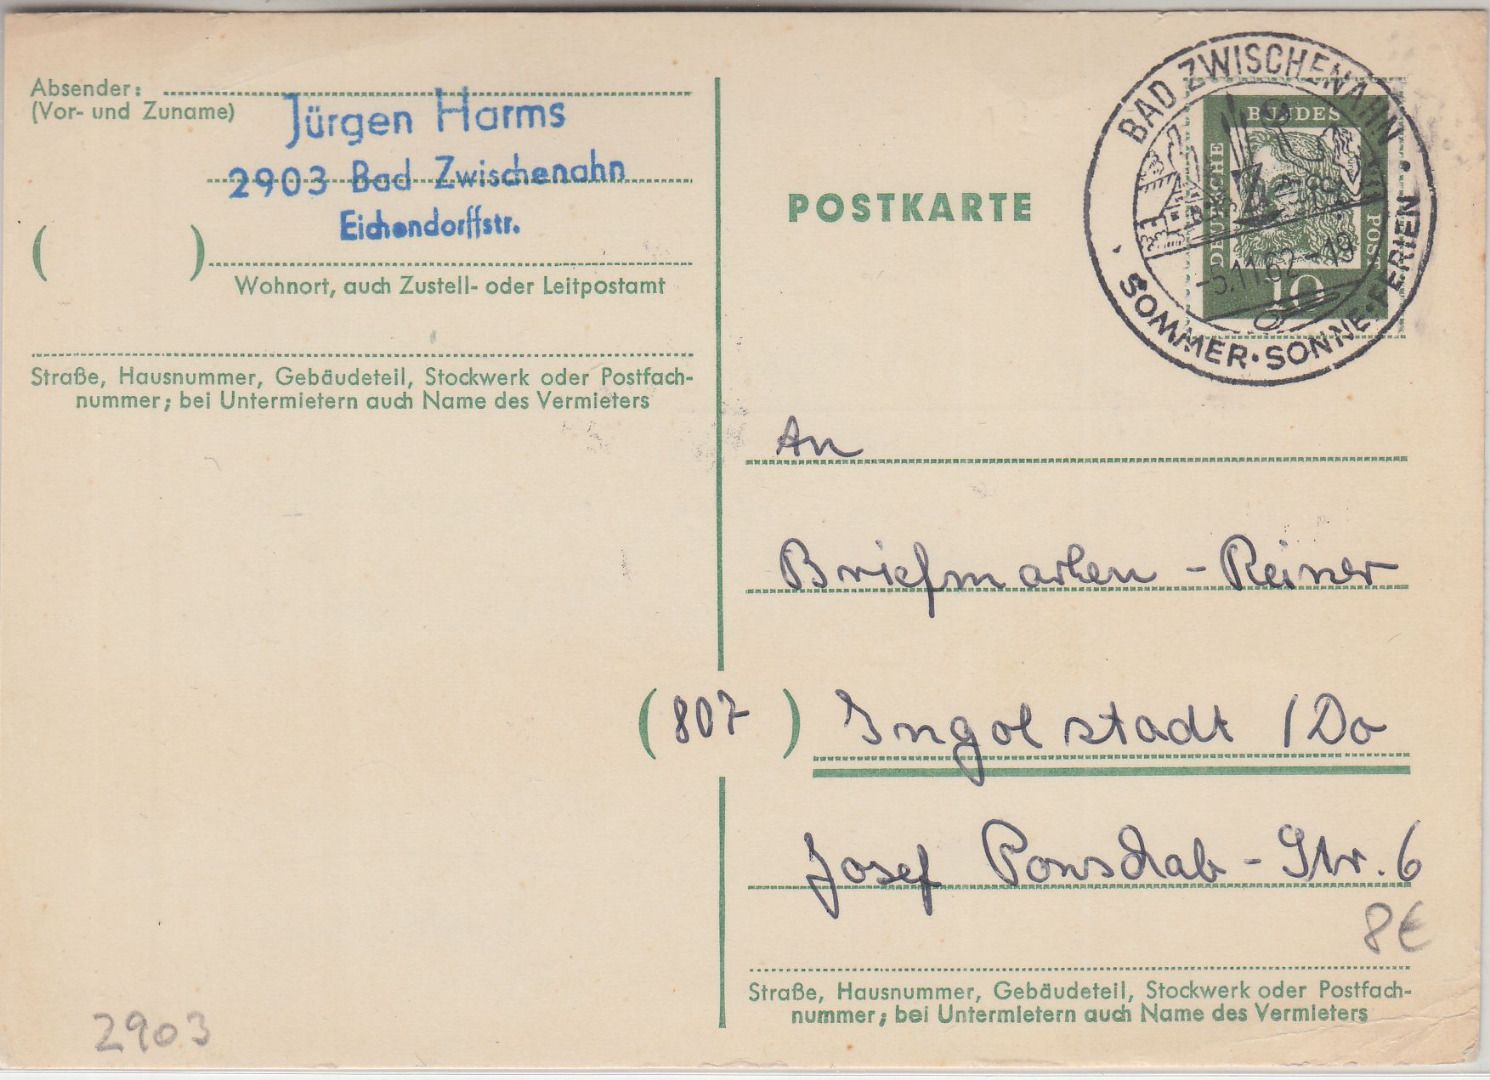 Absender:
(Vor- und Zuname)
Jürgen Harms
2903 Bad Zwischenahn
Eichendorffstr.
(          )
Wohnort, auch Zustell- oder Leitpostamt
Straße, Hausnummer, Gebäudeteil, Stockwerk oder Postfach-
nummer; bei Untermietern auch Name des Vermieters
POSTKARTE
BAD ZWISCHENAHN
SOMMER·SONNE·FERIEN
-5.11.62-19
DEUTSCHE
BUNDES
POST
10
An
Briefmarken - Reiner
(807) Ingolstadt /Do
Josef Ponschab-Str. 6
8€
Straße, Hausnummer, Gebäudeteil, Stockwerk oder Postfach-
nummer; bei Untermietern auch Name des Vermieters
2903